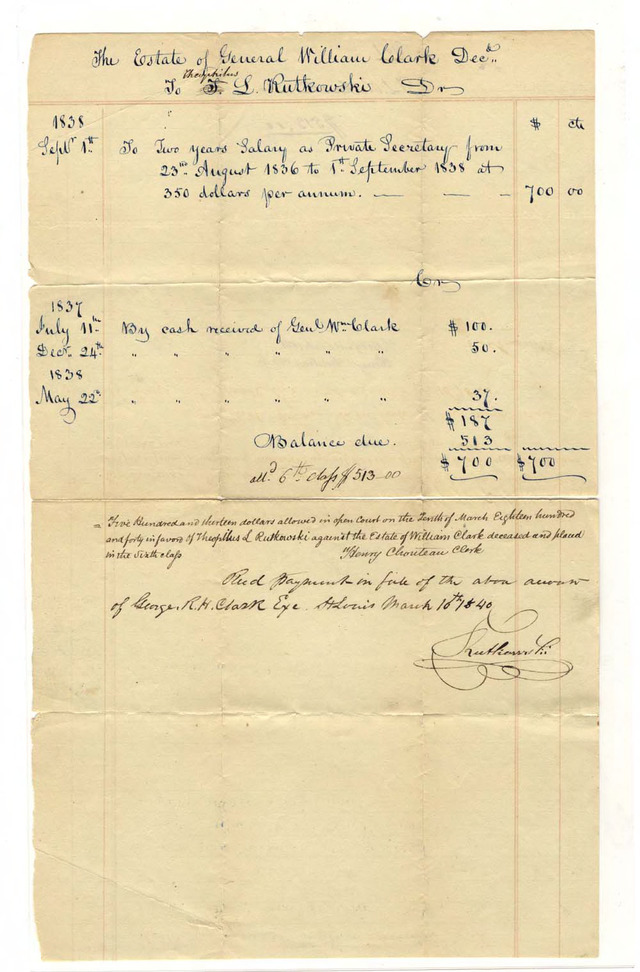 The Estate of General William Clark Decd.
Theophilus
To T. L. Rutkowski Dr
1838 $ cts
Septr 1st To Two years Salary as Private Secretary from
23rd August 1836 to 1st September 1838 at
350 dollars per annum. — — - 700 00
Cr
1837
July 11th By cash received of Genl Wm Clark $ 100.
Decr 24th " " " " " " 50.
1838
May 22d " " " " " " 37.
$ 187
Balance due. 513
$ 700 $ 700
alld 6th class $ 513-00
= Five Hundred and thirteen dollars allowed in open Court on the Tenth of March Eighteen hundred
and forty in favor of Theophilus L Rutkowski against the Estate of William Clark deceased and placed
in the Sixth class
Henry Chouteau Clerk
Recd payment in full of the above account
of George R. H. Clark Exe. St Louis March 16th 1840
Rutkowski